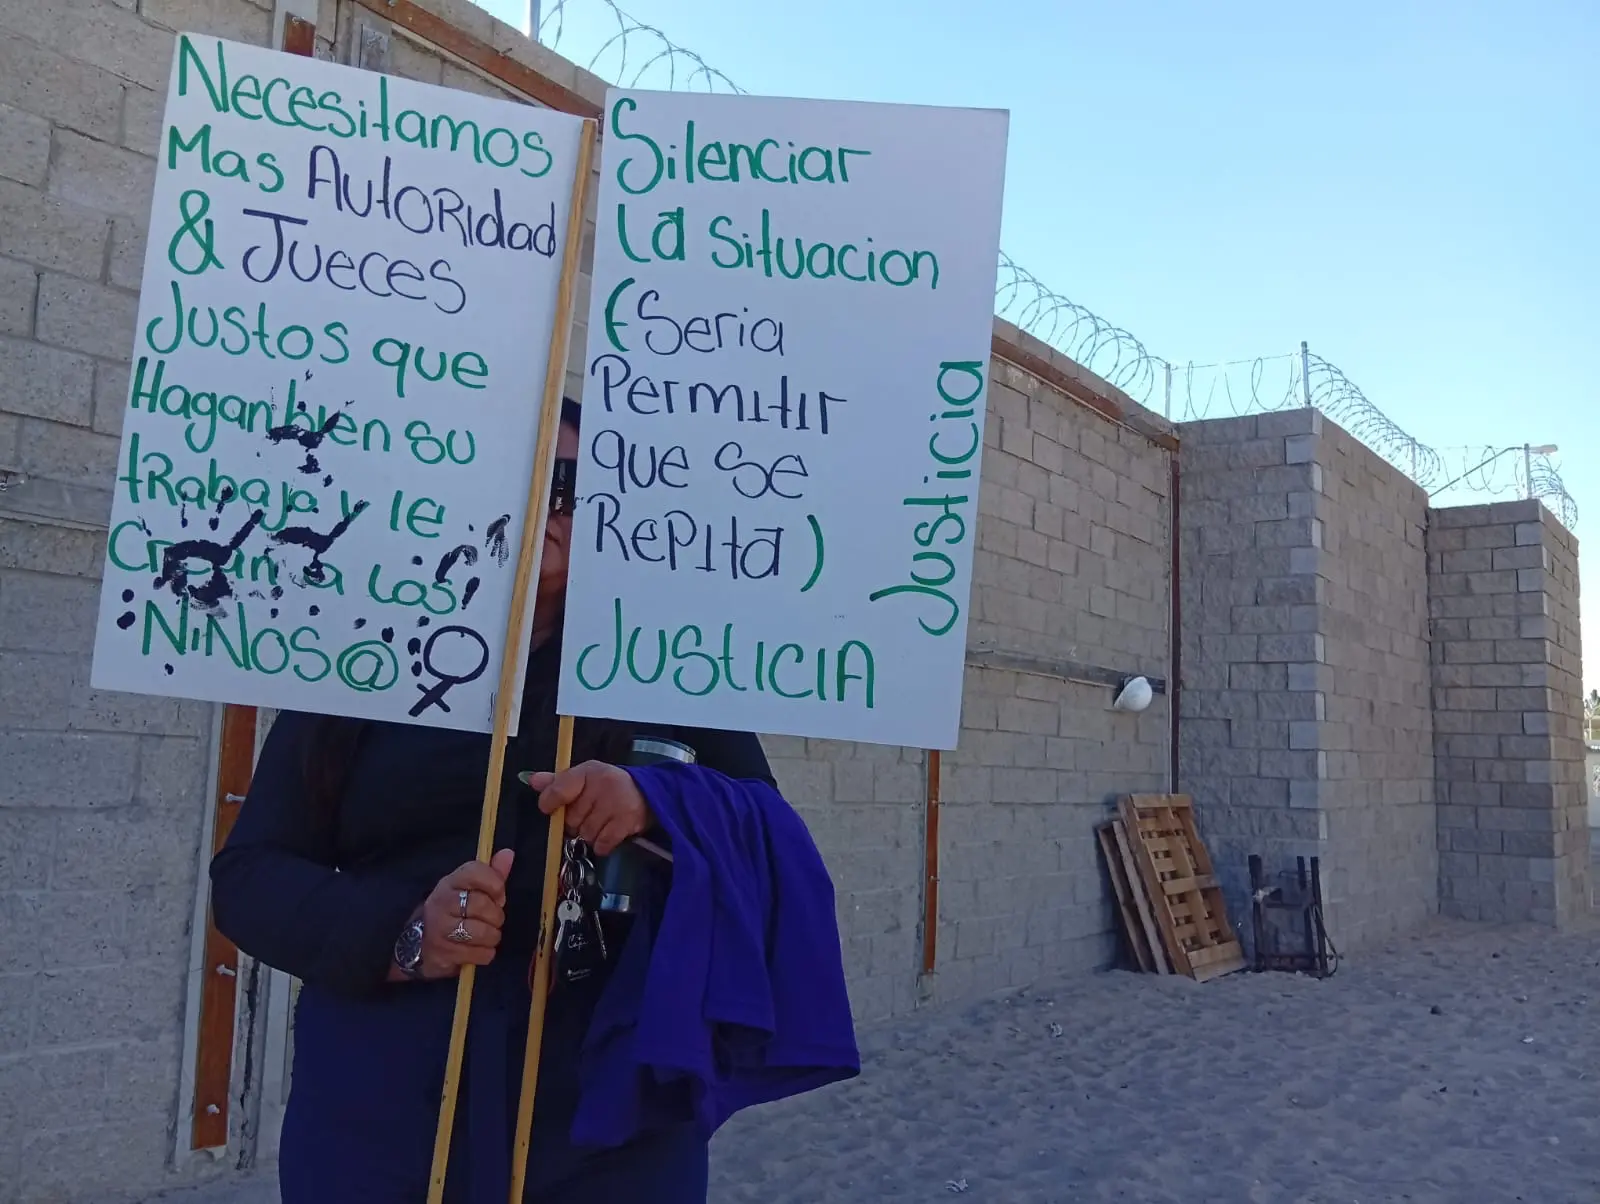 Necesitamos
Mas AutoRidad
& Jueces
Justos que
Hagan bien su
tRabajo y le
Crean a los
NiNos@
Silenciar
La Situacion
(Seria
Permitir
que se
Repita)
Justicia
Justicia